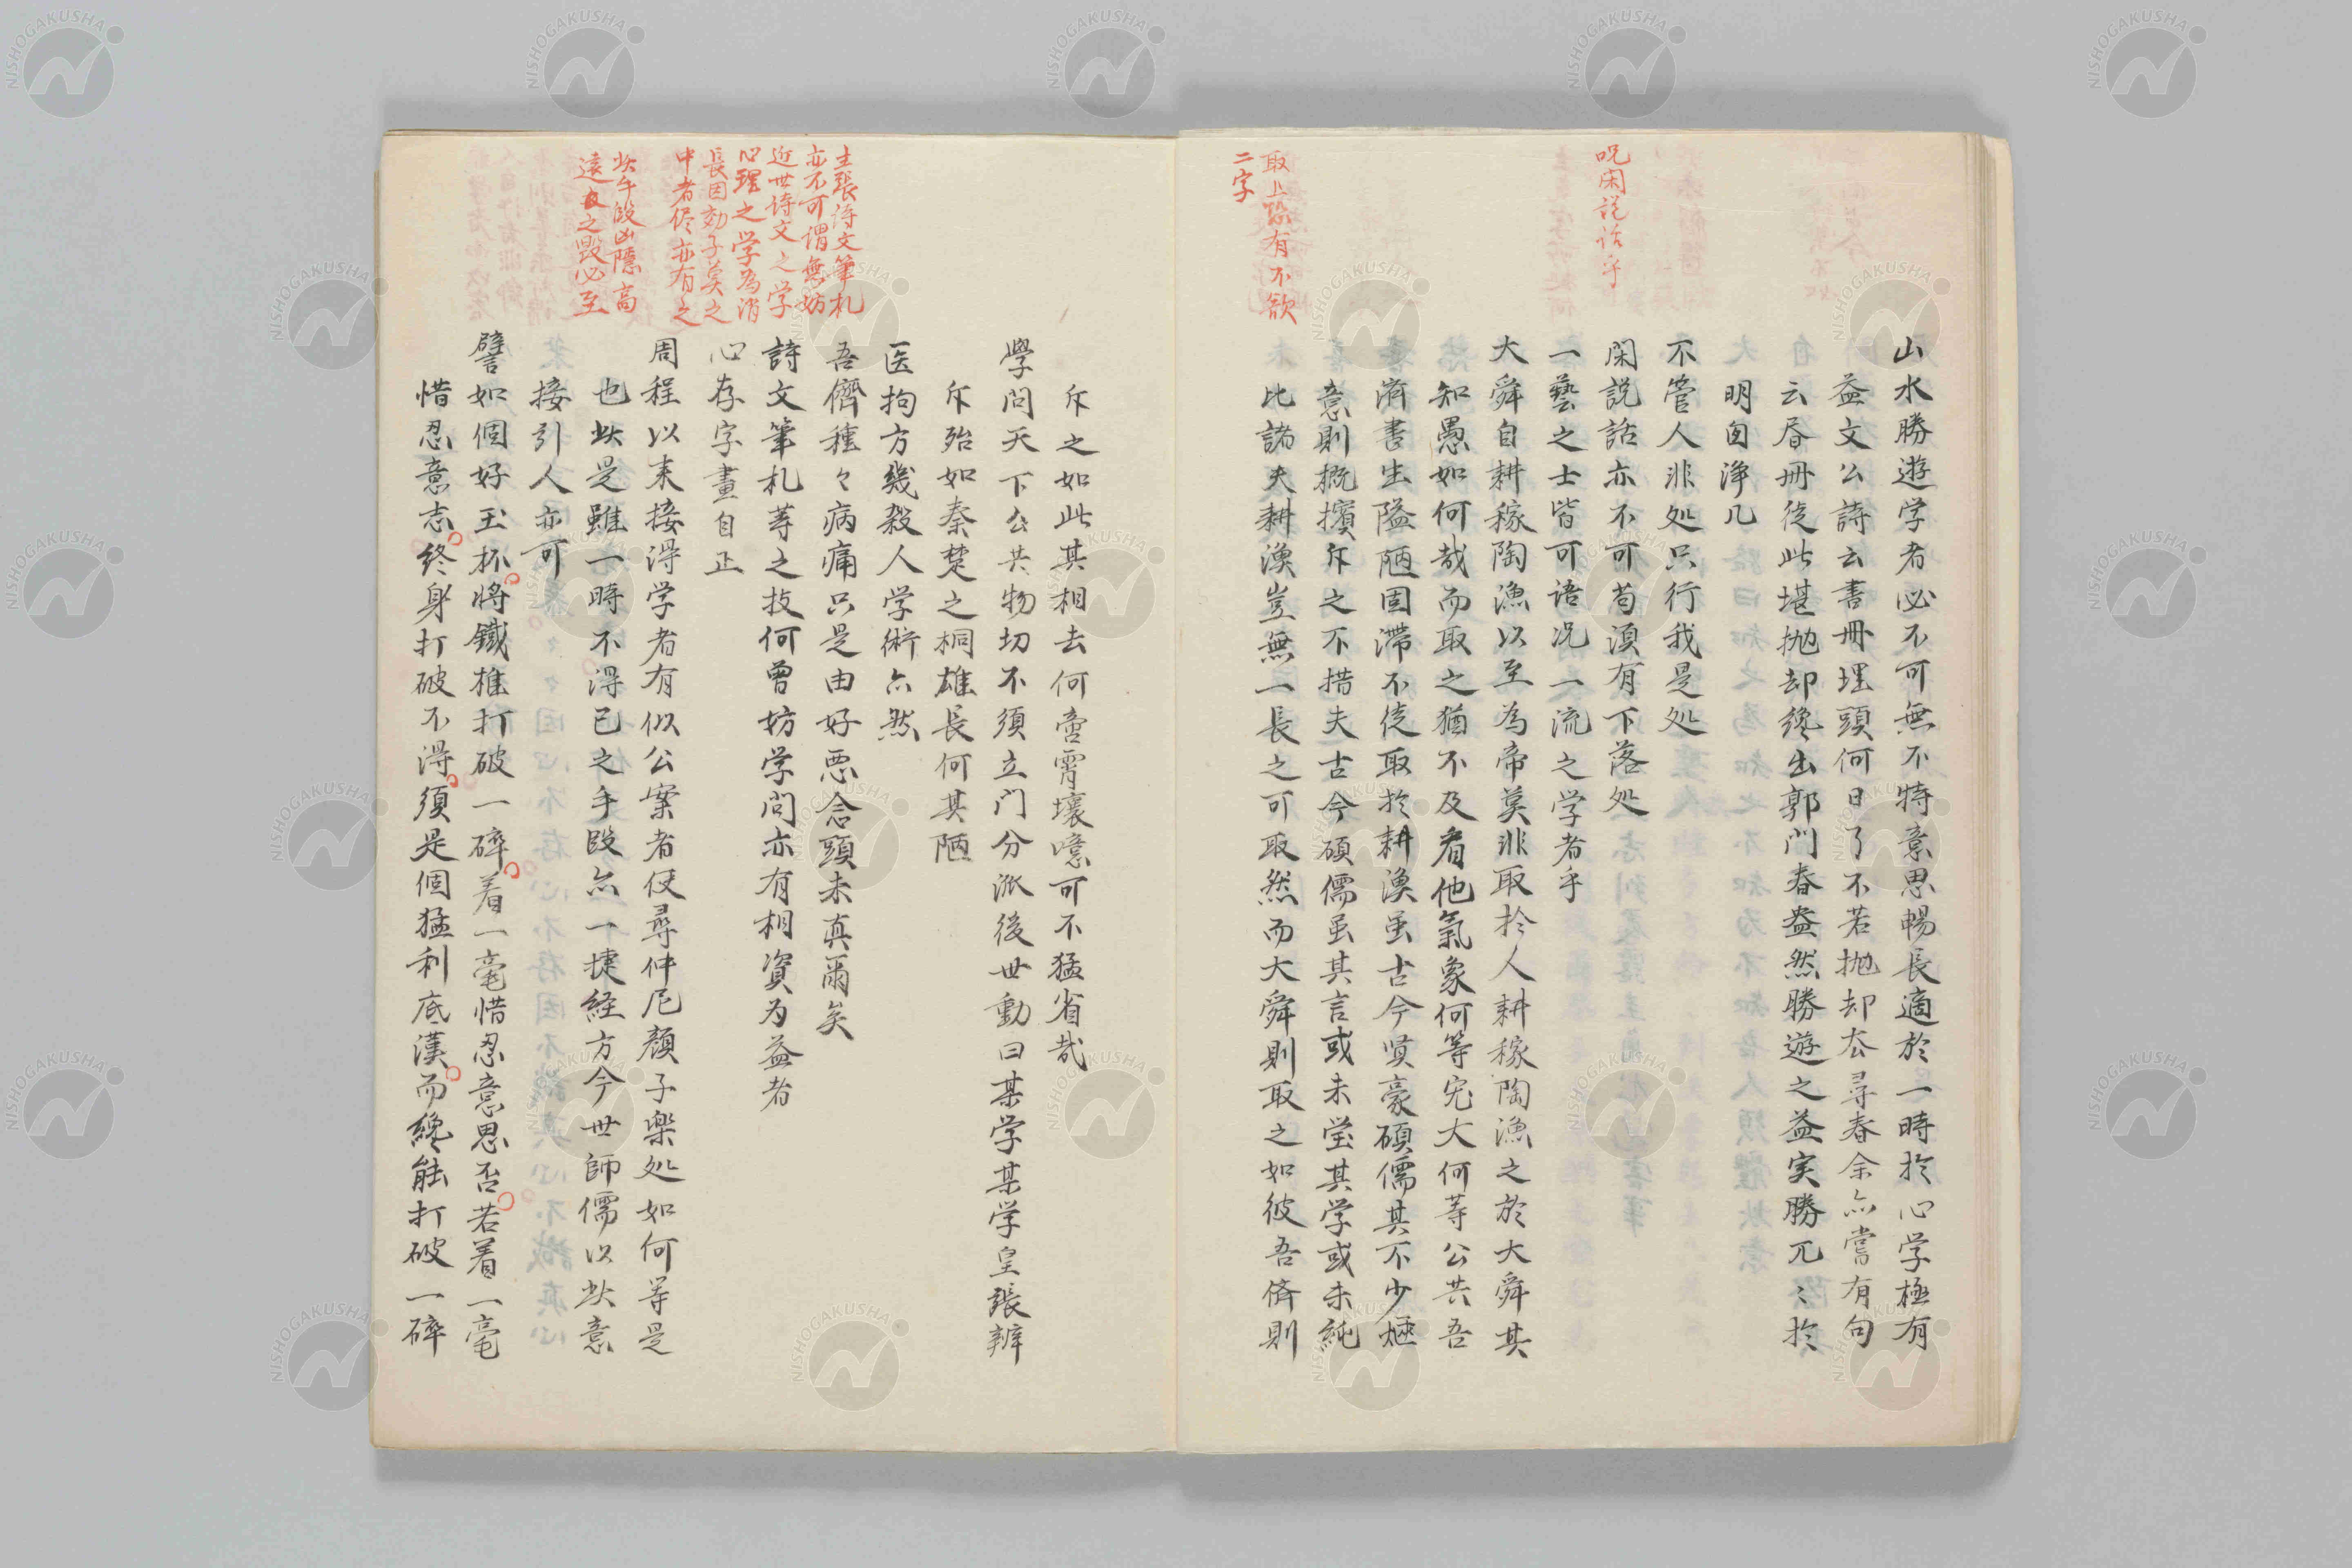 山水勝遊学者必不可無不特意思暢長適於一時於心学極有
益文公詩云書冊埋頭何日了不若抛却去尋春余亦嘗有句
云層冊徒此堪抛却纔出郭門春盎然勝遊之益実勝兀〻於
明囱浄几
不管人非处只行我是处
閑説話亦不可苟湏有下落处
一藝之士皆可语况一流之学者乎
大舜自耕稼陶漁以至為帝莫非取於人耕稼陶漁之於大舜其
知愚如何哉而取之猶不及看他氣象何等宽大何等公共吾
済書生隘陋固滞不徒取於耕漁虽古今賢豪碩儒其不少煙
意則概擯斥之不措夫古今碩儒虽其言或未莹其学或未純
比諸夫耕漁豈無一長之可取然而大舜則取之如彼吾侪則
呪閑説话乎
取上恐有不欲
二字
斥之如此其相去何啻霄壤噫可不猛省哉
學问天下公共物切不須立门分派後世動曰某学某学皇張辨
斥殆如秦楚之桐雄長何其陋
医拘方幾殺人学術亦然
吾儕種々病痛只是由好悪念頭未真爾矣
詩文筆札等之技何曽妨学问亦有相資为益者
心存字畫自正
周程以来接得学者有似公案者使尋仲尼顔子樂处如何等是
也此是雖一時不得已之手段亦一捷経方今世師儒以此意
接引人亦可
譬如個好玉杯将鐵椎打破一碎着一毫惜忍意思否若着一毫
惜忍意志終身打破不得須是個猛利底漢而纔能打破一碎
主張诗文筆札
亦不可谓無妨
近世诗文之学
心理之学為消
長因効子矣之
中者侭亦有之
此手段凶隠高
遠 之毀必至